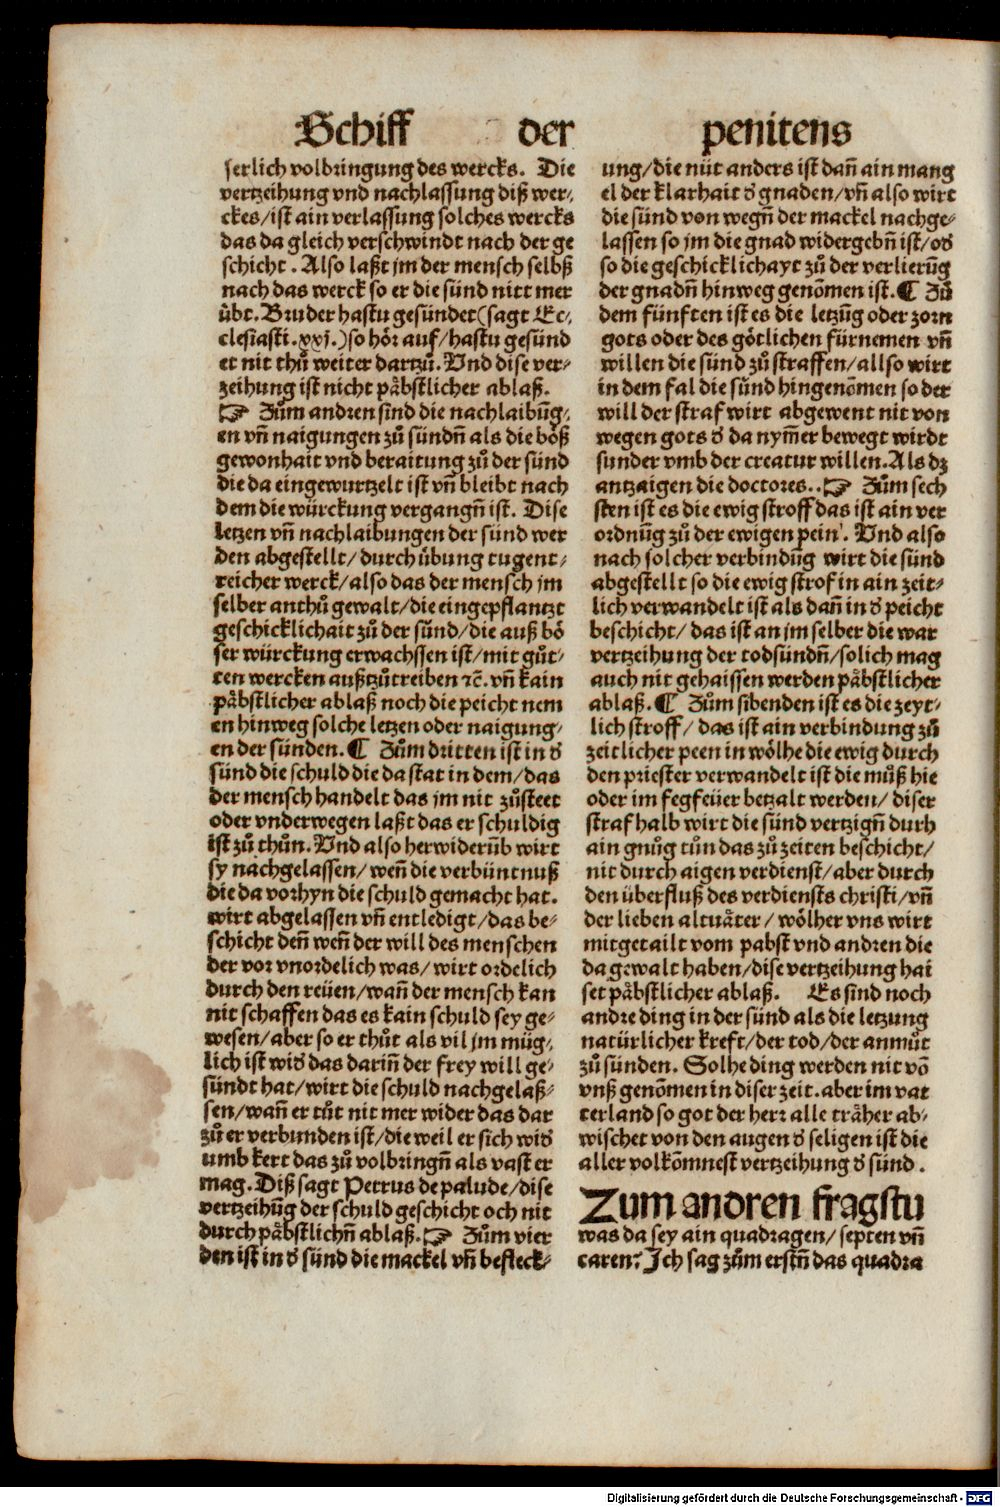 Schiff der penitens
serlich volbringung des wercks. Die
vertzeihung vnd nachlassung diß wer-
ckes/ist ain verlassung solches wercks
das da gleich verschwindt nach der ge
schicht . Also laßt jm der mensch selbß
nach das werck so er die sünd nitt mer
übt. Bruder hastu gesündet(sagt Ec-
clesiasti.xxj.)so hör auf/hastu gesünd
et nit thů weiter dartzů. Vnd dise ver-
zeihung ist nicht päbstlicher ablaß.
☞ Zům andren sind die nachlaibūg-
en vn̄ naigungen zů sündn̄ als die böß
gewonhait vnd beraitung zů der sünd
die da eingewurtzelt ist vn̄ bleibt nach
dem die würckung vergangn̄ ist. Dise
letzen vn̄ nachlaibungen der sünd wer
den abgestellt/durch übung tugent-
reicher werck/also das der mensch jm
selber anthů gewalt/die eingepflantzt
geschicklichait zů der sünd/die auß bö
ser würckung erwachssen ist/mit gůt-
ten wercken außtzůtreiben ⁊c̄. vn̄ kain
päbstlicher ablaß noch die peicht nem
en hinweg solche letzen oder naigung-
en der sünden.¶ Zům dritten ist in d̓
sünd die schuld die da stat in dem/das
der mensch handelt das jm nit zůsteet
oder vnderwegen laßt das er schuldig
ist zů thůn. Vnd also herwiderūb wirt
sy nachgelassen/wen̄ die verbüntnuß
die da vorhyn die schuld gemacht hat.
wirt abgelassen vn̄ entledigt/das be-
schicht den̄ wen̄ der will des menschen
der vor vnordelich was/wirt ordelich
durch den reüen/wan̄ der mensch kan
nit schaffen das es kain schuld sey ge-
wesen/aber so er thůt als vil jm müg-
lich ist wid̓ das darin̄ der frey will ge-
sündt hat/wirt die schuld nachgelaß-
sen/wan̄ er tůt nit mer wider das dar
zů er verbunden ist/die weil er sich wid̓
umb kert das zů volbringn̄ als vast er
mag. Diß sagt Petrus de palude/dise
vertzeihūg der schuld geschicht och nit
durch päbstlichn̄ ablaß.☞ Zům vier
den ist in d̓ sünd die mackel vn̄ befleck-
ung/die nüt anders ist dan̄ ain mang
el der klarhait d̓ gnaden/vn̄ also wirt
die sünd von wegn̄ der mackel nachge-
lassen so jm die gnad widergebn̄ ist/od̓
so die geschicklichayt zů der verlierūg
der gnadn̄ hinweg genōmen ist.¶ Zů
dem fünften ist es die letzūg oder zorn
gots oder des götlichen fürnemen vn̄
willen die sünd zů straffen/allso wirt
in dem fal die sünd hingenōmen so der
will der straf wirt abgewent nit von
wegen gots d̓ da nym̄er bewegt wirdt
sunder vmb der creatur willen. Als dz
antzaigen die doctores..☞ Zům sech
sten ist es die ewig stroff das ist ain ver
ordnūg zů der ewigen pein. Vnd also
nach solcher verbindūg wirt die sünd
abgestellt so die ewig strof in ain zeit-
lich verwandelt ist als dan̄ in d̓ peicht
beschicht/das ist an jm selber die war
vertzeihung der todsündn̄/solich mag
auch nit gehaissen werden päbstlicher
ablaß.¶ Zům sibenden ist es die zeyt-
lich stroff/ das ist ain verbindung zů
zeitlicher peen in wölhe die ewig durch
den priester verwandelt ist die můß hie
oder im fegfeüer betzalt werden/ diser
straf halb wirt die sünd vertzign̄ durh
ain gnůg tůn das zů zeiten beschicht/
nit durch aigen verdienst/aber durch
den überfluß des verdiensts christi/vn̄
der lieben altuäter/ wölher vns wirt
mitgetailt vom pabst vnd andren die
da gewalt haben/dise vertzeihung hai
set päbstlicher ablaß. Es sind noch
andre ding in der sünd als die letzung
natürlicher kreft/der tod/der anmůt
zů sünden. Solhe ding werden nit vō
vnß genōmen in diser zeit.aber im vat
terland so got der herr alle träher ab-
wischet von den augen d̓ seligen ist die
aller volkōmnest vertzeihung d̓ sünd.
Zum andren fragstu
was da sey ain quadragen/septen vn̄
caren? Ich sag zům erstn̄ das quadra
Digitalisierung gefördert durch die Deutsche Forschungsgemeinschaft - DFG